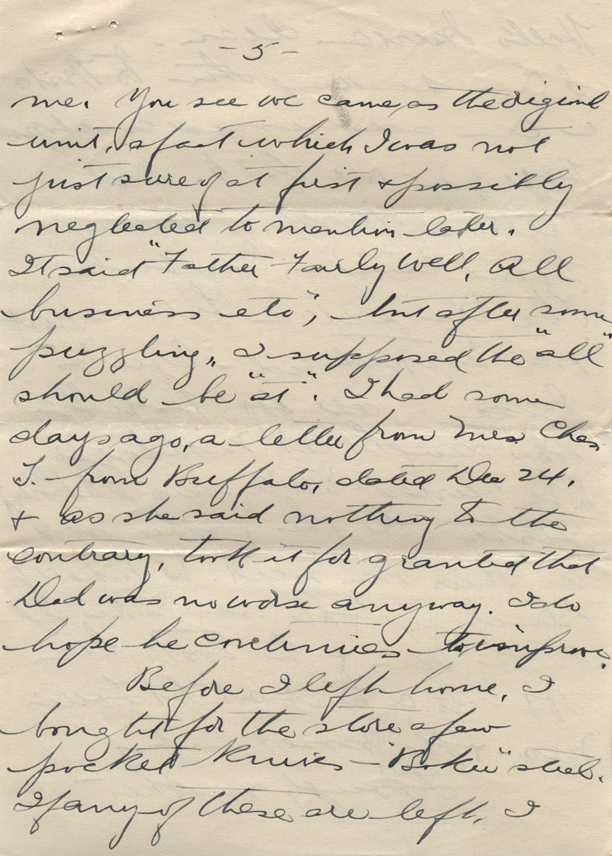 -5-
me. You see we came as the original
unit, a fact which I was not
just sure of at first & possibly
neglected to mention later.
It said "Father Fairly Well, All
business etc", but after some
puzzling, I supposed the "all"
should be "at". I had some
days ago, a letter from Mrs Chas
T. from Buffalo, dated Dec 24.
& as she said nothing to the
contrary, took it for granted that
Dad was no worse anyway. I do
hope he continues to improve.
Before I left home, I
bought for the store a few
pocket knives - "Boker" steel.
If any of these are left, I